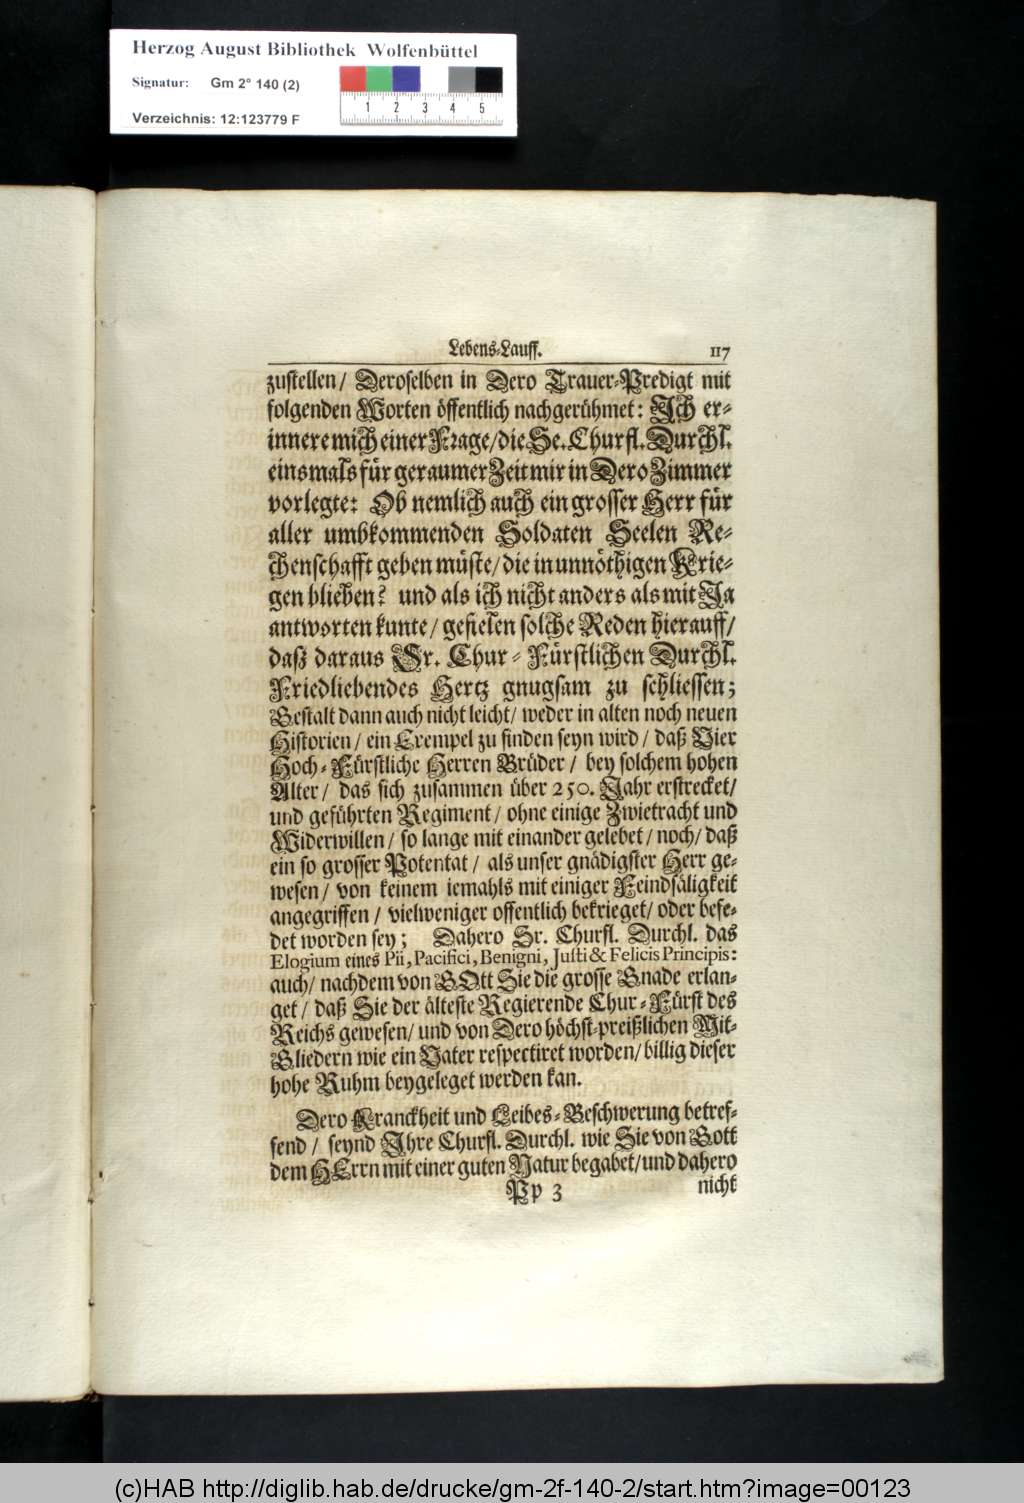 Herzog August Bibliothek Wolfenbüttel
Signatur: Gm 2° 140 (2)
1 2 3 4 5
Verzeichnis: 12:123779 F
Lebens-Lauff. 117
zustellen/ Deroselben in Dero Trauer-Predigt mit
folgenden Worten öffentlich nachgerühmet: Ich er-
innere mich einer Frage/ die Se. Churfl. Durchl.
einsmals für geraumer Zeit mir in Dero Zimmer
vorlegte: Ob nemlich auch ein grosser Herr für
aller umbkommenden Soldaten Seelen Re-
chenschafft geben müste/ die in unnöthigen Krie-
gen blieben? und als ich nicht anders als mit Ja
antworten kunte/ gefielen solche Reden hierauff/
daß daraus Sr. Chur-Fürstlichen Durchl.
Friedliebendes Hertz gnugsam zu schliessen;
Gestalt dann auch nicht leicht/ weder in alten noch neuen
Historien/ ein Exempel zu finden seyn wird/ daß Vier
Hoch-Fürstliche Herren Brüder/ bey solchem hohen
Alter/ das sich zusammen über 250. Jahr erstrecket/
und geführten Regiment/ ohne einige Zwietracht und
Widerwillen/ so lange mit einander gelebet/ noch/ daß
ein so grosser Potentat/ als unser gnädigster Herr ge-
wesen/ von keinem iemahls mit einiger Feindsäligkeit
angegriffen/ vielweniger offentlich bekrieget/ oder befe-
det worden sey; Dahero Sr. Churfl. Durchl. das
Elogium eines Pii, Pacifici, Benigni, Justi & Felicis Principis:
auch/ nachdem von GOtt Sie die grosse Gnade erlan-
get/ daß Sie der älteste Regierende Chur-Fürst des
Reichs gewesen/ und von Dero höchst-preißlichen Mit-
Gliedern wie ein Vater respectiret worden/ billig dieser
hohe Ruhm beygeleget werden kan.
Dero Kranckheit und Leibes-Beschwerung betref-
fend/ seynd Ihre Churfl. Durchl. wie Sie von Gott
dem HErrn mit einer guten Natur begabet/ und dahero
Pp 3 nicht
(c)HAB http://diglib.hab.de/drucke/gm-2f-140-2/start.htm?image=00123